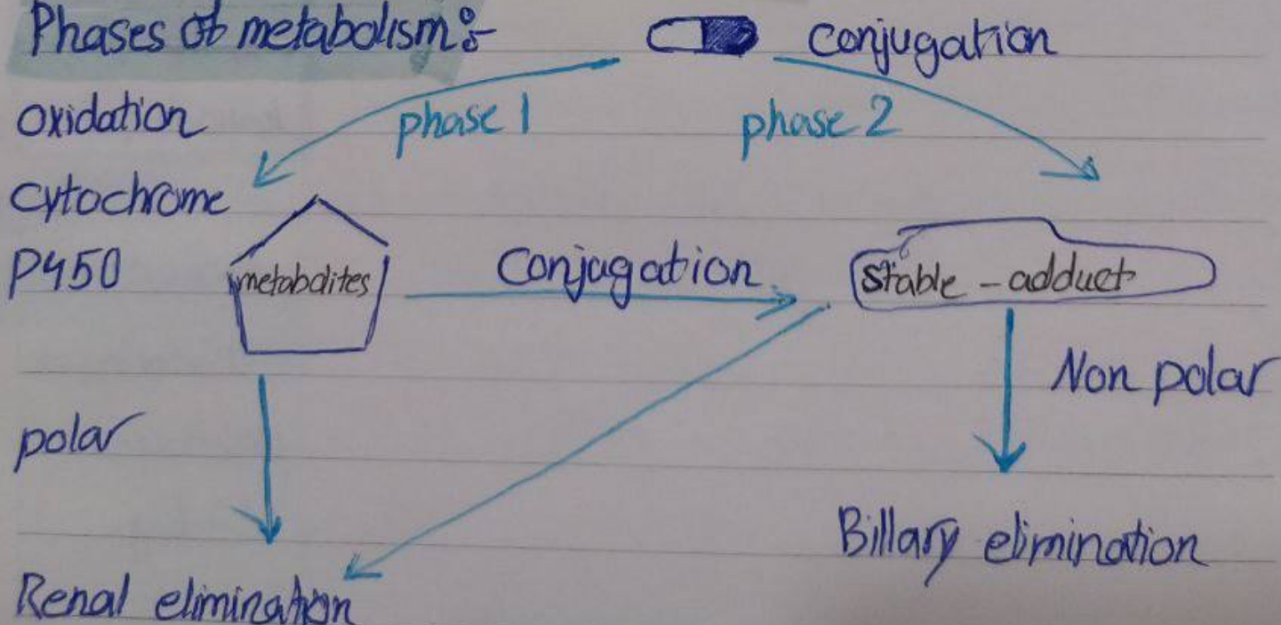 Phases of metabolism:-
conjugation
oxidation
phase 1
phase 2
cytochrome
P450
metabolites
Conjagation
Stable - adduct
Non polar
polar
Billary elimination
Renal elimination